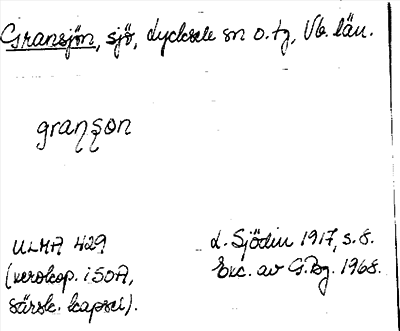 Gransjön, sjö, Lycksele sn o. tg, Vb. län.
granson
ULMA 429
(xerokop. i SOA,
särsk. kapsel).
L. Sjödin 1917, s. 8.
Exc. av G. Bg. 1968.